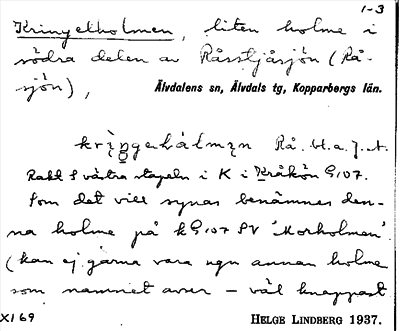 1-3
Kringelholmen, liten holme i
södra delen av Råsstjåsjön (Rå-
sjön),
Älvdalens sn, Älvdals tg, Kopparbergs län.
Rå.
Rakt S västra stapeln i K i Kråkön G 107.
Som det vill synas benämnes den-
na holme på k G 107 SV 'Morholmen'.
(kan ej gärna vara ngn annan holme
som namnet avser – väl knappast
XI 69
HELGE LINDBERG 1937.